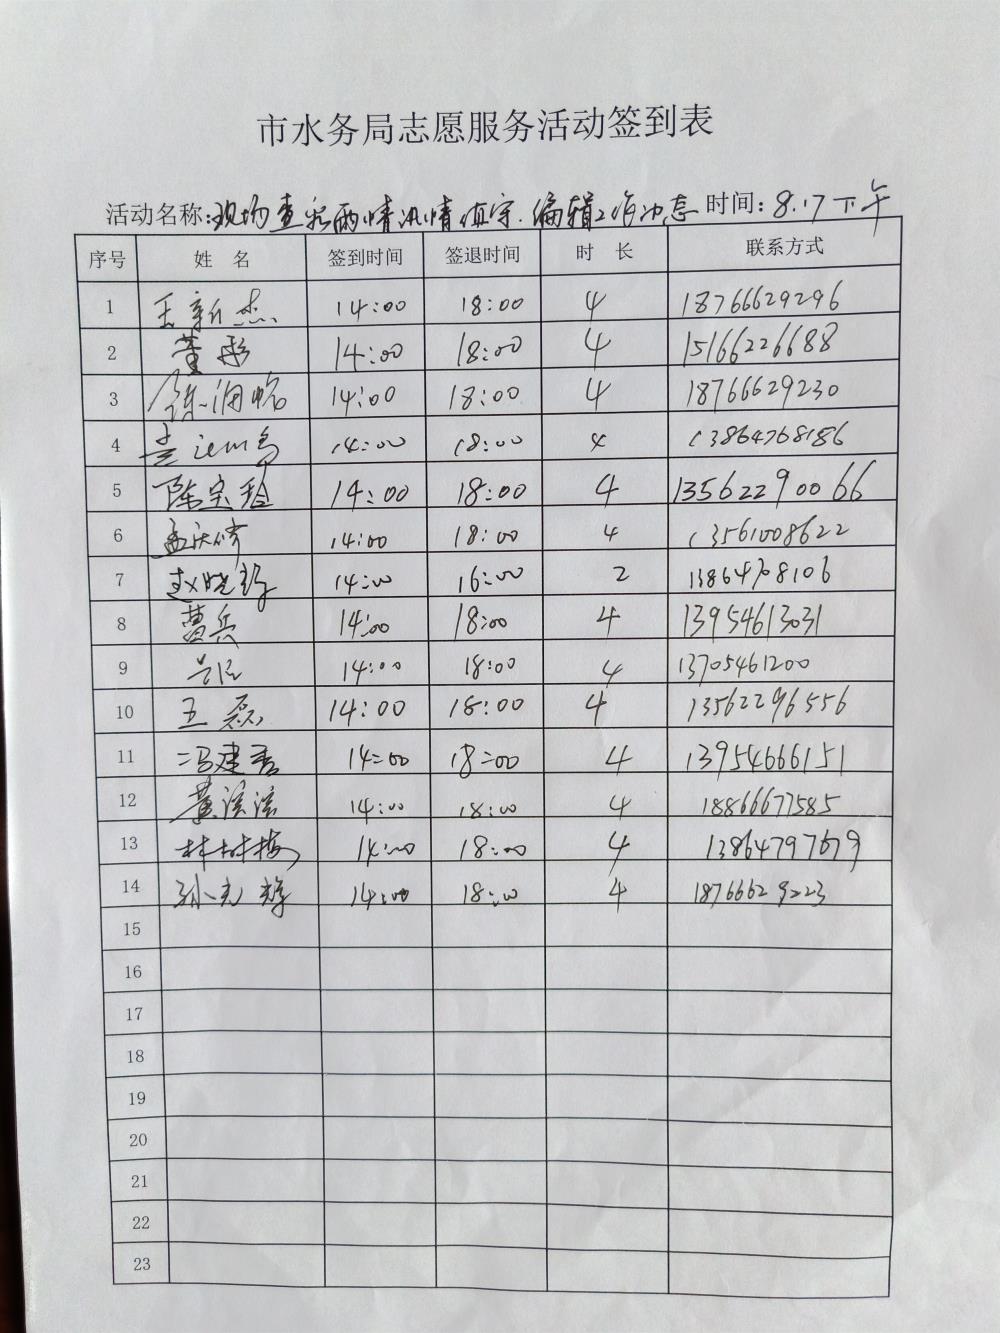 市水务局志愿服务活动签到表
活动名称:现场查看雨情汛情值守.编辑工作动态 时间:8.17下午
序号 姓名 签到时间 签退时间 时长 联系方式
1 王新杰 14:00 18:00 4 18766629296
2 董彤 14:00 18:00 4 15166226688
3 14:00 18:00 4 18766629230
4 14:00 18:00 4 13864768186
5 陈宝玲 14:00 18:00 4 13562290066
6 孟庆倩 14:00 18:00 4 13561008622
7 赵晓静 14:00 16:00 2 13864708106
8 曹兵 14:00 18:00 4 13954613031
9 14:00 18:00 4 13705461200
10 王磊 14:00 18:00 4 13562296556
11 冯建香 14:00 18:00 4 13954666151
12 黄滨滨 14:00 18:00 4 18866677585
13 林树梅 14:00 18:00 4 13864797679
14 孙志静 14:00 18:00 4 18766629223
15
16
17
18
19
20
21
22
23